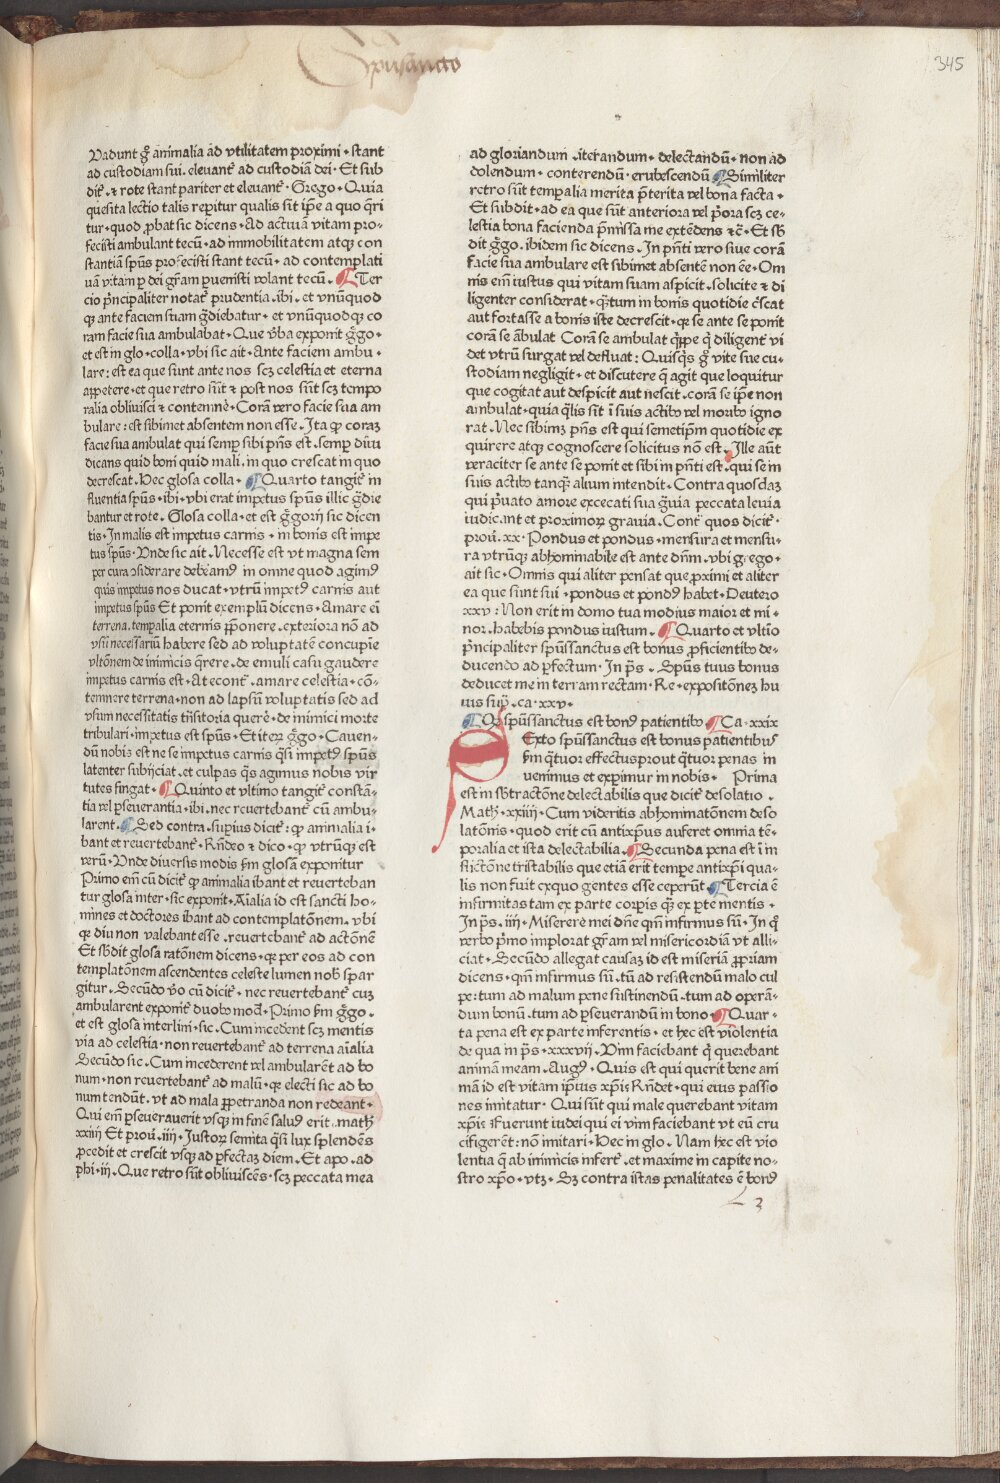 Spūsancto
345
Vadunt g̊ animalia ad vtilitatem proximi · stant
ad custodiam sui . eleuant᷑ ad custodiā dei · Et sub
dit᷑ · ⁊ rote stant pariter et eleuant᷑ · Grego · Quia
quesita lectio talis reperitur qualis sit ip̄e a quo q̄ri
tur · quod ꝓbat sic dicens · Ad actiuā vitam pro-
fecisti ambulant tecū · ad immobilitatem atqꝫ con
stantiā spūs profecisti stant tecū · ad contemplati
uā vitam ꝑ dei gr̄am ꝑuenisti volant tecū . ¶ Ter
cio p̄ncipaliter notat᷑ prudentia . ibi . et vnūquod
qꝫ ante faciem suam g̊diebatur · et vnūquodqꝫ co
ram facie sua ambulabat · Que v̄ba exponit g̊go ·
et est in glo · colla · vbi sic ait · Ante faciem ambu ·
lare : est ea que sunt ante nos scꝫ celestia et eterna
appetere · et que retro sūt ⁊ post nos sūt scꝫ tempo
ralia obliuisci ⁊ contemnē · Corā vero facie sua am
bulare : est sibimet absentem non esse . Ita ꝙ coraꝫ
facie sua ambulat qui semꝑ sibi p̄ns est . semꝑ diiu
dicans quid boni quid mali . in quo crescat in quo
decrescat . Hec glosa colla · ¶ Quarto tangit᷑ in
fluentia spūs · ibi · vbi erat impetus spūs illic g̊die
bantur et rote . Glosa colla · et est g̊gorij sic dicen
tis · In malis est impetus carnis · in bonis est impe
tus spūs · Vnde sic ait . Necesse est vt magna sem
per cura ꝯsiderare debeamꝰ in omne quod agimꝰ
quis impetus nos ducat · vtrū impetꝰ carnis aut
impetus spūs Et ponit exemplū dicens · Amare ei
terrena . temꝑalia eternis p̄ponere . exteriora nō ad
vsū necessariū habere sed ad voluptatē concupie
vltōnem de inimicis q̄rere · de emuli casu gaudere
impetus carnis est · At econt᷑ . amare celestia · cō-
temnere terrena · non ad lapsū voluptatis sed ad
vsum necessitatis trāsitoria querē · de inimici morte
tribulari · impetus est spūs · Et iterꝝ g̊go · Cauen-
dū nobis est ne se impetus carnis q̄si impetꝰ spūs
latenter subijciat . et culpas q̄s agimus nobis vir
tutes fingat · ¶ Quinto et vltimo tangit᷑ constā-
tia vel ꝑseuerantia · ibi . nec reuertebant᷑ cū ambu-
larent . ¶ Sed contra . suꝑius dicit᷑ : ꝙ animalia i-
bant et reuertebant᷑ · Rn̄deo ⁊ dico · ꝙ vtrūqꝫ est
verū · Vnde diuersis modis ẜm glosā exponitur
Primo em̄ cū dicit᷑ ꝙ animalia ibant et reuerteban
tur glosa inter · sic exponit · Aīalia id est sancti ho-
mines et doctores ibant ad contemplatōnem . vbi
qꝛ diu non valebant esse . reuertebant᷑ ad actōnē
Et sb̄dit glosa ratōnem dicens · qꝛ per eos ad con
templatōnem ascendentes celeste lumen nob̄ spar
gitur . Secūdo v̊o cū dicit᷑ · nec reuertebant᷑ cuꝫ
ambularent exponit᷑ duobꝰ mod̄ . Primo ẜm g̊go .
et est glosa interlini · sic · Cum incedent scꝫ mentis
via ad celestia · non reuertebant᷑ ad terrena aīalia
Secūdo sic . Cum incederent vel ambularent ad bo
num · non reuertebant᷑ ad malū · qꝛ electi sic ad bo
num tendūt . vt ad mala ꝑpetranda non redeant ·
Qui em̄ ꝑseuerauerit vsqꝫ in finē saluꝰ erit . math̄
xxiiij Et prou . iiij · Iustoꝝ semita q̄si lux splendēs
ꝓcedit et crescit vsqꝫ ad ꝑfectaꝫ diem . Et apo . ad
phi · iij . Que retro sūt obliuiscēs · scꝫ peccata mea
ad gloriandum . iterandum · delectandū · non ad
dolendum · conterendū · erubescendū ¶ Similiter
retro sūt temꝑalia merita p̄terita vel bona facta ·
Et subdit · ad ea que sūt anteriora vel p̄ora scꝫ ce-
lestia bona facienda p̄missa me extēdens ⁊c̄ · Et sb̄
dit g̊go . ibidem sic dicens . In p̄nti vero siue corā
facie sua ambulare est sibimet absentē non eē · Om
nis em̄ iustus qui vitam suam aspicit . solicite ⁊ di
ligenter considerat · q̄ꝫtum in bonis quotidie c̄scat
aut fortasse a bonis iste decrescit · qꝛ se ante se ponit
corā se ābulat Corā se ambulat q̄ꝑpe q̄ diligent᷑ vi
det vtrū surgat vel defluat : Quisq̄s g̊ vite sue cu-
stodiam negligit · et discutere q̄ agit que loquitur
que cogitat aut despicit aut nescit . corā se ip̄e non
ambulat · quia q̄lis sit ī suis actibꝰ vel moribꝰ igno
rat . Nec sibimꝫ p̄ns est qui semetip̄m quotidie ex
quirere atqꝫ cognoscere solicitus nō est . Ille aūt
veraciter se ante se ponit et sibi in p̄nti est . qui se in
suis actibꝰ tanqꝫ alium intendit . Contra quosdaꝫ
qui p̄uato amore excecati sua g̊uia peccata leuia
iudicant et proximoꝝ grauia . Cont᷑ quos dicit᷑ ·
prou . xx · Pondus et pondus · mensura et mensu-
ra vtrūqꝫ abhominabile est ante dn̄m . vbi g̊rego ·
ait sic · Omnis qui aliter pensat que ꝓximi et aliter
ea que sunt sui · pondus et pondꝰ habet · Deutero
xxv : Non erit in domo tua modius maior et mi ·
nor . habebis pondus iustum . ¶ Quarto et vltīo
p̄ncipaliter spūssanctus est bonus ꝓficientibꝰ de-
ducendo ad ꝑfectum · In p̄s . Spūs tuus bonus
deducet me in terram rectam · Re · expositōneꝫ hu
ius suꝑ · ca · xxv ·
¶ Qꝙ spūssanctus est bonꝰ patientibꝰ ¶ Ca · xxix
Sexto spūssanctus est bonus patientibꝰ
ẜm q̄tuor effectus prout q̄tuor penas in
uenimus et exꝑimur in nobis · Prima
est in sb̄tractōne delectabilis que dicit᷑ desolatio .
Math̄ · xxiiij · Cum videritis abhominatōnem deso
latōnis · quod erit cū antixp̄us auferet omnia tē-
poralia et ista delectabilia . ¶ Secunda pena est ī in
flictōne tristabilis que etiā erit tempe antixp̄i qua-
lis non fuit exquo gentes esse ceperūt . ¶ Tercia ē
infirmitas tam ex parte corꝑis q̄ꝫ ex ꝑte mentis ·
In p̄s . iiij · Miserere mei dn̄e qm̄ infirmus sū · In q̊
verbo p̄mo implorat gr̄am vel misericordiā vt alli-
ciat · Secūdo allegat causaꝫ id est miseriā ꝓpriam
dicens · qm̄ infirmus sū . tū ad resistendū malo cul
pe : tum ad malum pene sustinendū · tum ad operā-
dum bonū . tum ad ꝑseuerandū in bono · ¶ Quar-
ta pena est ex parte inferentis · et hec est violentia
de qua in p̄s · xxxvij . Vim faciebant q̄ querebant
animā meam . Augꝰ . Quis est qui querit bene ani
mā id est vitam ip̄ius xp̄is Rn̄det · qui eius passio
nes imitatur . Qui sūt qui male querebant vitam
xp̄is Fuerunt iudei qui ei vim faciebant vt eū cru
cifigerent : nō imitari · Hec in glo . Nam hec est vio
lentia q̄ ab inimicis infert᷑ . et maxime in capite no-
stro xp̄o · vtꝫ · Sꝫ contra istas penalitates ē bonꝰ
L 3